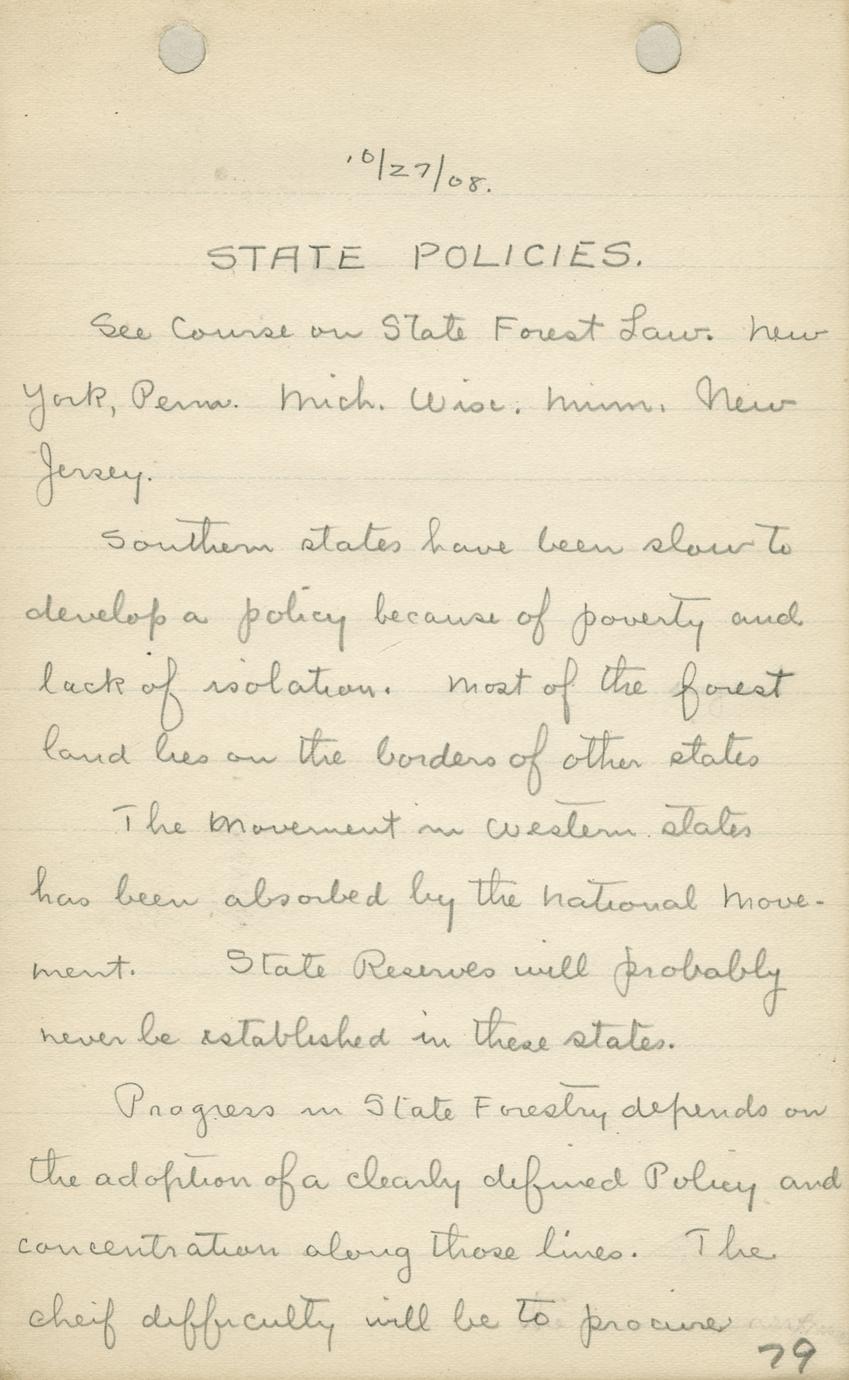 10/27/08.
STATE POLICIES.
See Course on State Forest Law. New
York, Penn. Mich. Wisc. Minn. New
Jersey.
Southern states have been slow to
develop a policy because of poverty and
lack of isolation. Most of the forest
land lies on the borders of other states
The Movement in Western states
has been absorbed by the National Move-
ment. State Reserves will probably
never be established in these states.
Progress in State Forestry depends on
the adoption of a clearly defined Policy and
concentration along those lines. The
cheif difficulty will be to procure
79